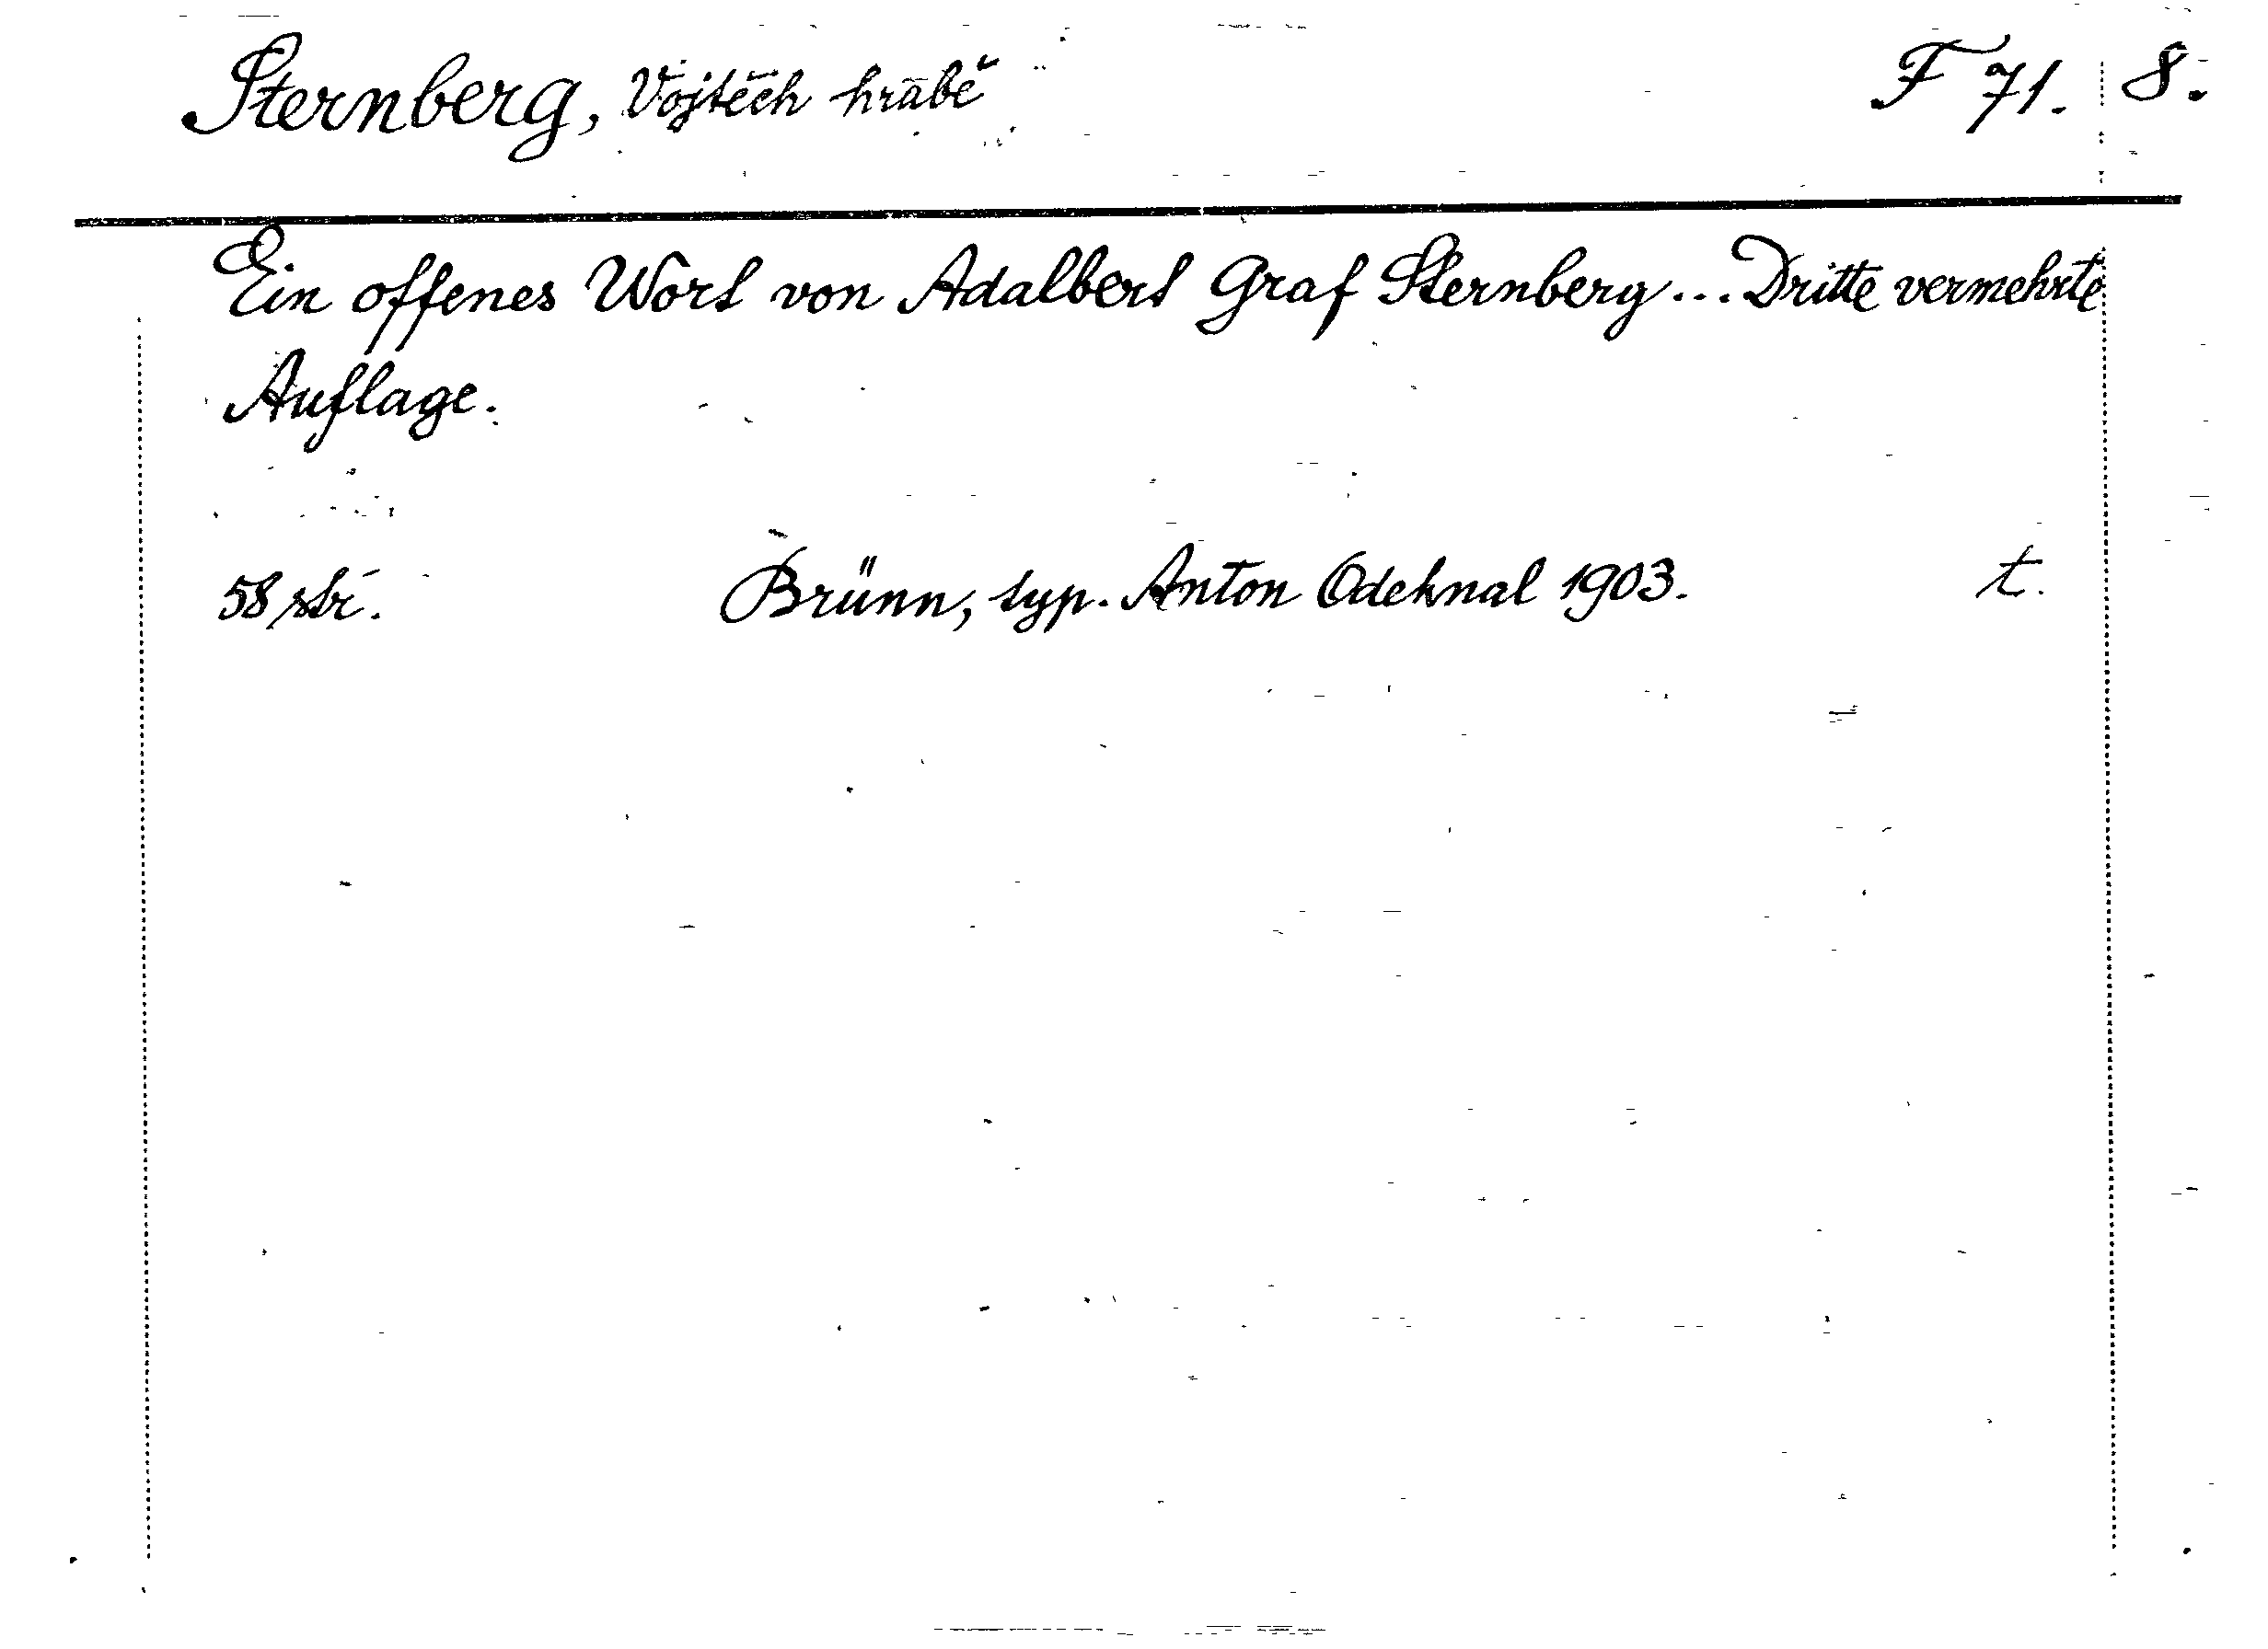 Sternberg, Vojtěch hrabě F 71. 8.
Ein offenes Wort von Adalbert Graf Sternberg... Dritte vermehrte
Auflage.
58 str. Brünn, typ. Anton Odehnal 1903. t.